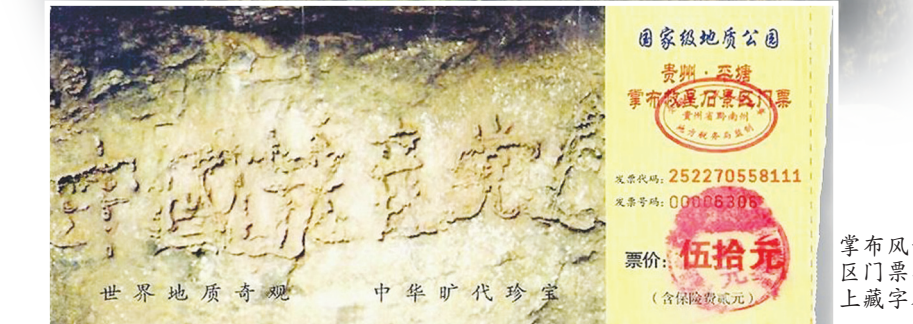 中國共産党
世界地质奇观 中华旷代珍宝
国家级地质公园
贵州·平塘
掌布救星石景区门票
贵州省黔南州
地方税务局监制
发票代码：252270558111
发票号码：00006306
票价：伍拾元
（含保险费贰元）
掌布风
区门票
上藏字